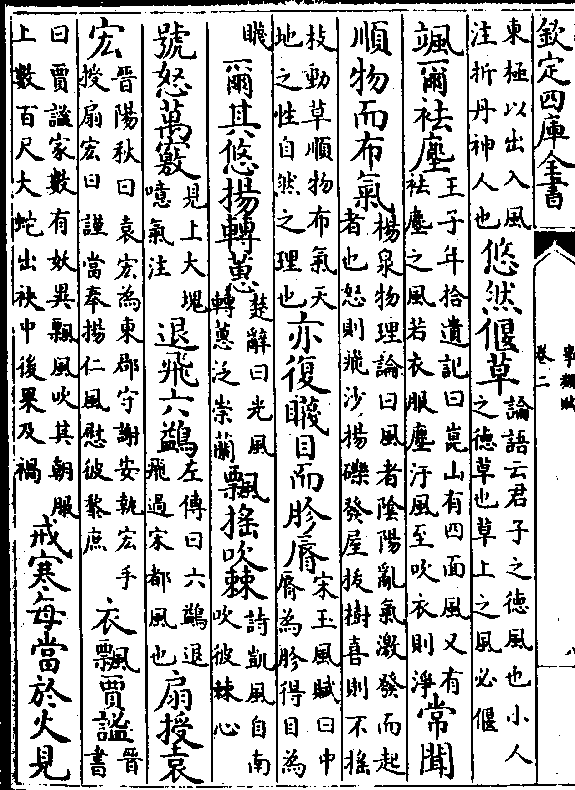 欽定四庫全書
事類賦
卷二
東極以出入風
注折丹神人也
悠然偃草
論語云君子之德風也小人
之德草也草上之風必偃
颯爾袪塵
王子年拾遺記曰崑山有四面風又有
袪塵之風若衣服塵汙風至吹衣則淨
常聞
順物而布氣
楊泉物理論曰風者陰陽亂氣激發而起
者也怒則飛沙揚礫發屋拔樹喜則不搖
枝動草順物布氣天
地之性自然之理也
亦復䁾目而胗脣
宋玉風賦曰中
脣為胗得目為
䁾
爾其悠揚轉蕙
楚辭曰光風
轉蕙泛崇蘭
飄搖吹棘
詩凱風自南
吹彼棘心
號怒萬竅
見上大塊
噫氣注
退飛六鷁
左傳曰六鷁退
飛過宋都風也
扇授袁
宏
晉陽秋曰袁宏為東郡守謝安執宏手
授扇宏曰謹當奉揚仁風慰彼黎庶
衣飄賈謐
晉
書
曰賈謐家數有妖異飄風吹其朝服
上數百尺大蛇出袂中後果及禍
戒寒每當於火見